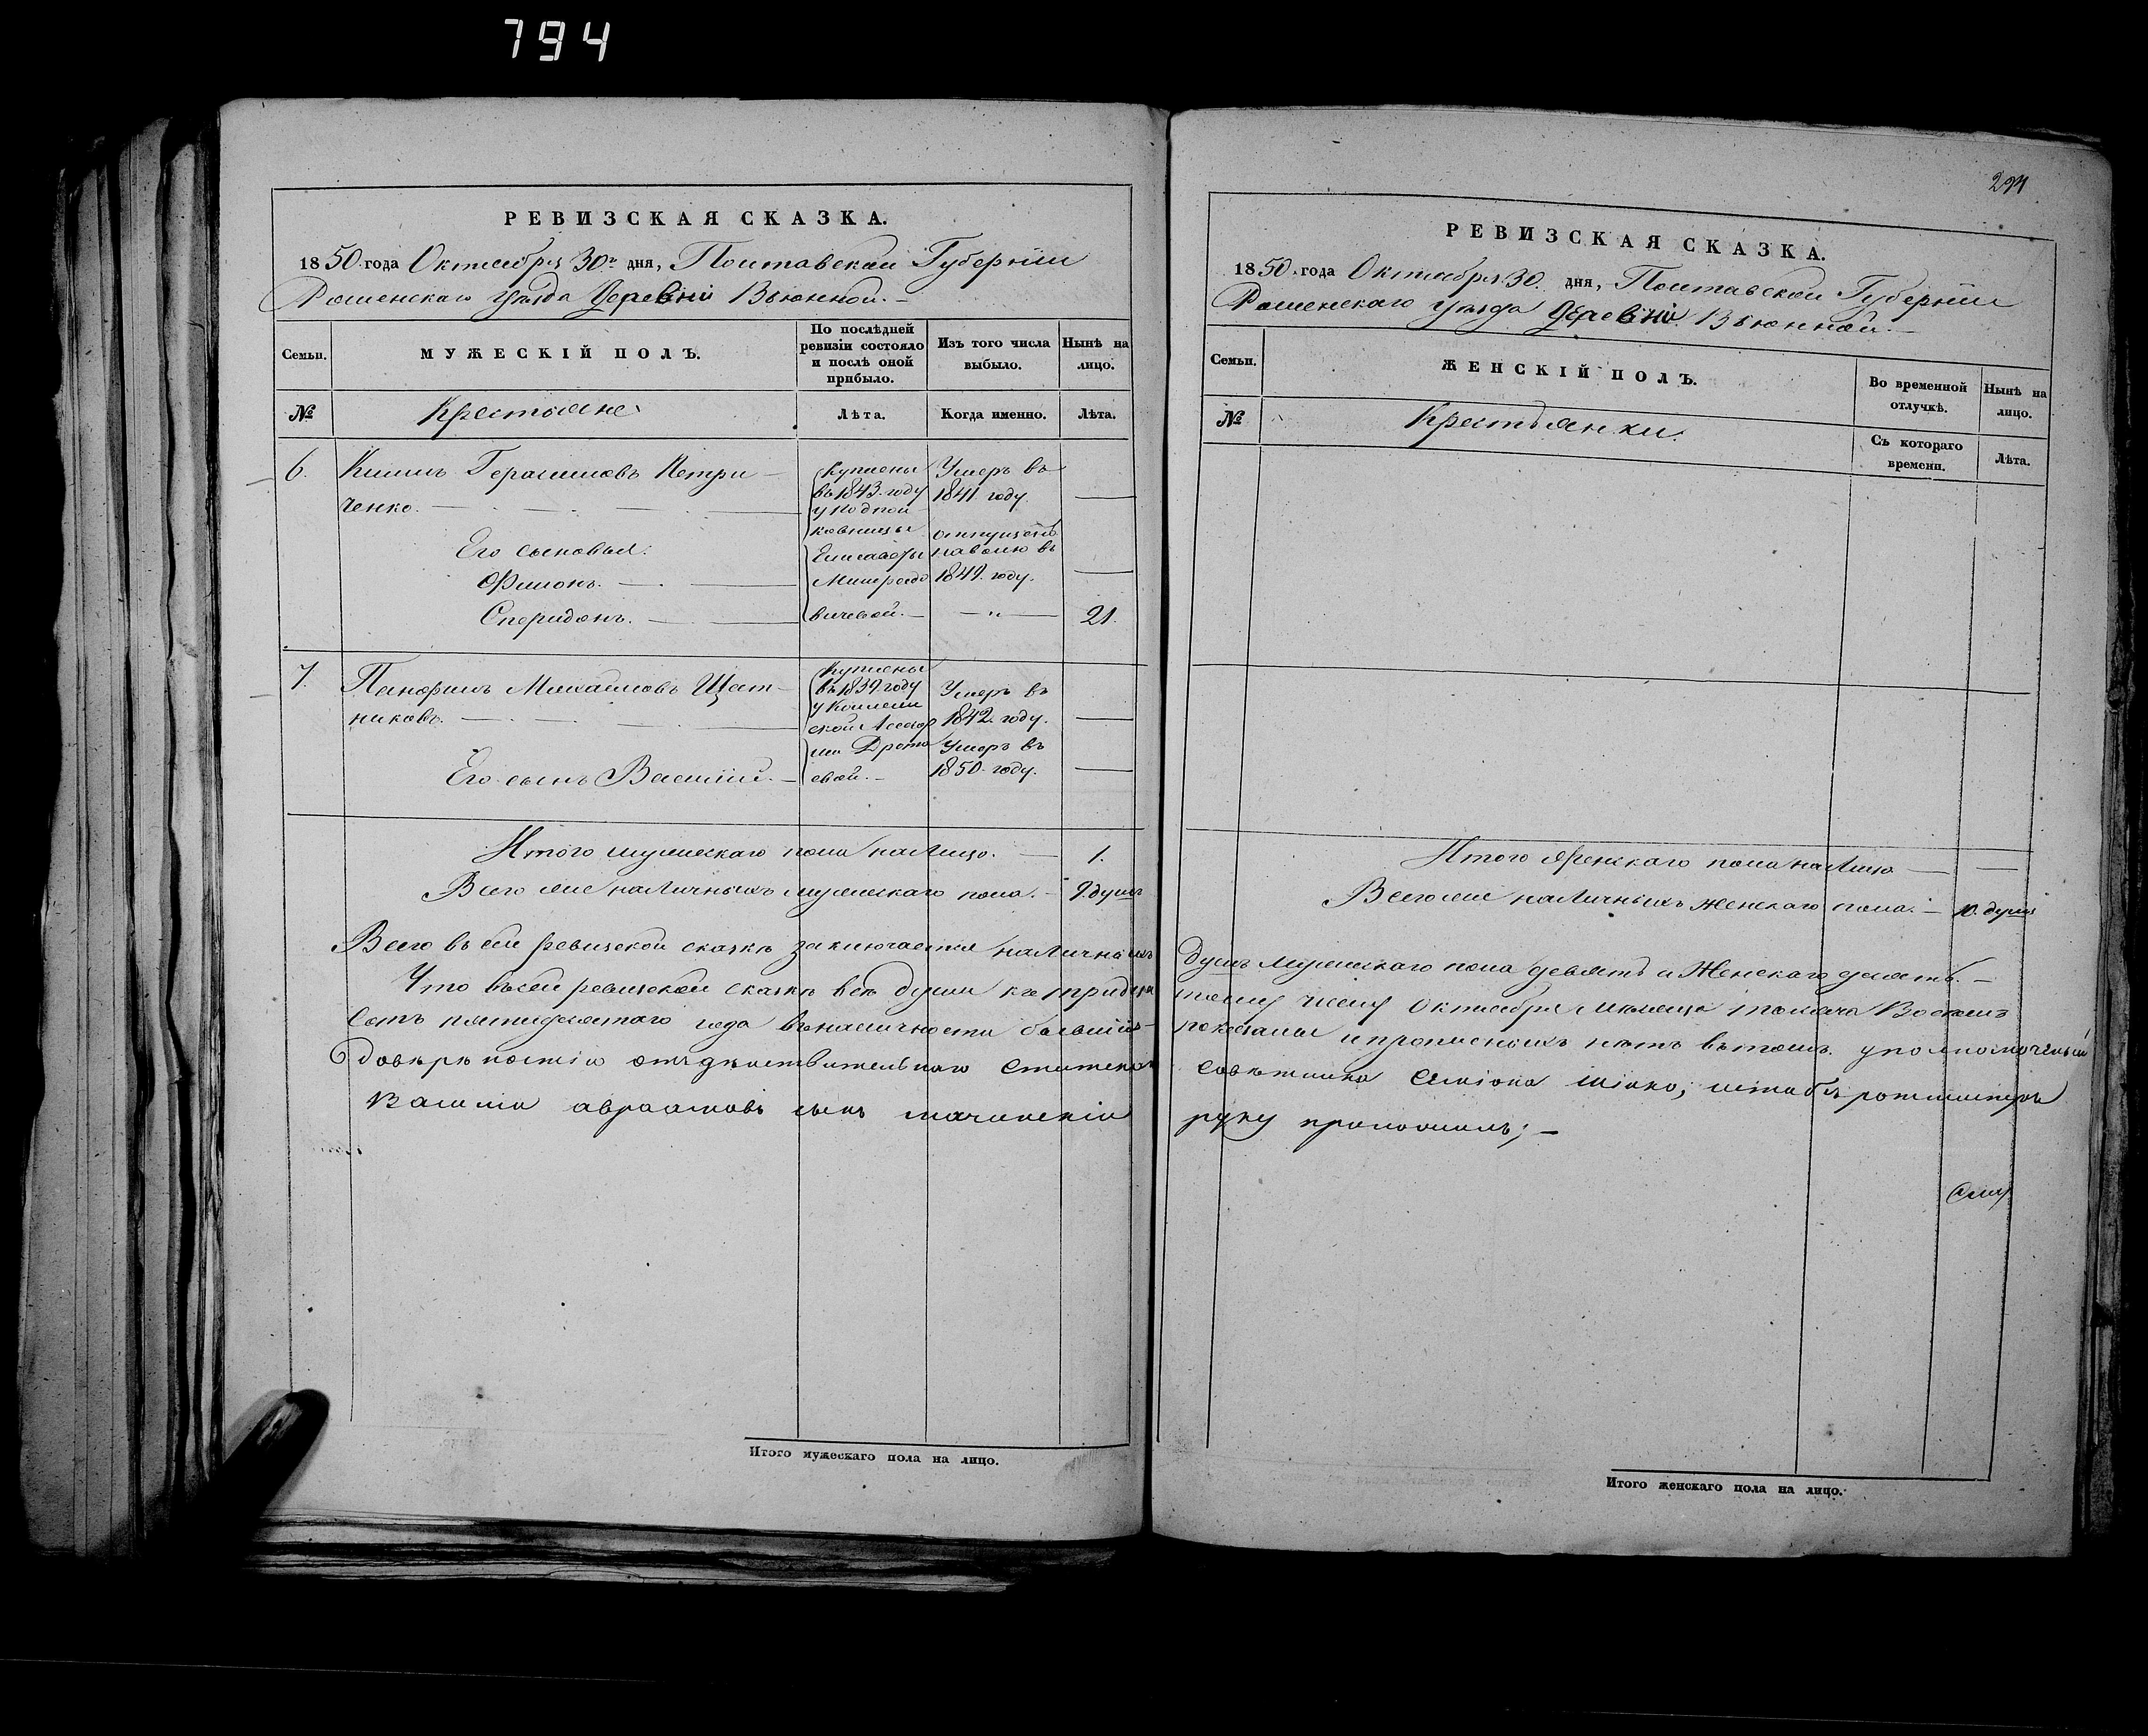 794
РЕВИЗСКАЯ СКАЗКА.
1850 года Октября 30го дня, Полтавской Губернiи
Роменскаго уѣзда Деревнi Вьюнной. —
Семьи.
МУЖЕСКIЙ ПОЛЪ.
По послѣдней ревизiи состояло и послѣ оной прибыло.
Изъ того числа выбыло.
Нынѣ на лицо.
№
Крестьяне
Лѣта.
Когда именно.
Лѣта.
6. Герасимовъ Петри-
ченко.
Куплены
въ 1843. году
у Подпол
ковницы
Елисаветы
Милорадо
вичевой. —
Умеръ въ
1841. году.
Его сыновья:
Филонъ. —
отпущенъ
наволю въ
1849. году.
Сперидонъ. —
— „ —
21.
7. Панфилъ Михайловъ Щет-
никовъ.
Куплены
въ 1839. году
у Коллеж
ской Ассесор
ши
евой. —
Умеръ въ
1842. году.
Его сынъ Василiй. —
Умеръ въ
1850. году.
Итого мужескаго пола налицо. — 1.
Всего же наличныхъ мужескаго пола. — 9. душъ
Всего въ сей ревизской сказкѣ заключается наличныхъ
Что въсей ревизской сказкѣ всѣ души къ тридца
сотъ пятидесятаго года въналичности бывшiя
довѣрѣностiю отъдѣиствительнаго статскаго
Василiи авраамовъ сынъ
Итого мужескаго пола на лицо.
294
РЕВИЗСКАЯ СКАЗКА.
1850. года Октября 30. дня, Полтавской Губернiи
Роменскаго уѣзда Деревнi Вьюнной. —
Семьи.
ЖЕНСКIЙ ПОЛЪ.
Во временной отлучкѣ.
Нынѣ на лицо.
№
Крестьянки.
Съ котораго времени.
Лѣта.
Итого Женскаго пола налицо — —
Всего же наличныхъ женскаго пола. — 10. душъ
душъ мужескаго пола девять и Женскаго десять. —
тому числу Октября мѣсяца тысяча Восемъ
показаны и прописныхъ нѣтъ вътомъ. уполномоченый
совѣтника штабъ ротмистръ
руку приложилъ; —
Итого женскаго пола на лицо.